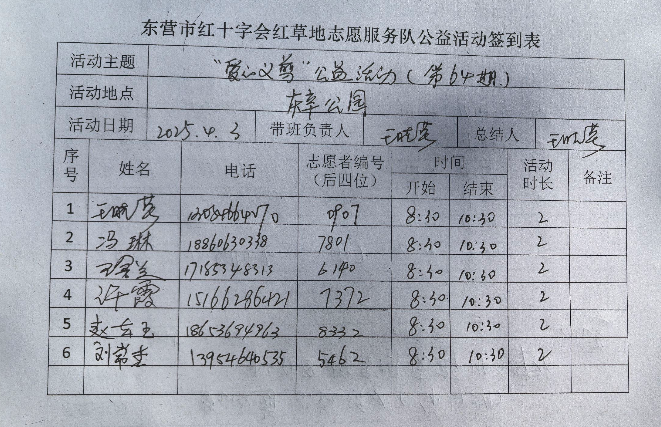 东营市红十字会红草地志愿服务队公益活动签到表
活动主题 “爱心义剪”公益活动(第64期)
活动地点 辛公园
活动日期 2025.4.3 带班负责人 王晓蓉 总结人 王晓蓉
序号 姓名 电话 志愿者编号（后四位） 时间 开始 结束 活动时长 备注
1 王晓蓉 0907 8:30 10:30 2
2 冯琳 18860630338 7801 8:30 10:30 2
3 17185348313 6140 8:30 10:30 2
4 许霞 15166286421 7372 8:30 10:30 2
5 赵玉 18653694963 8332 8:30 10:30 2
6 刘常 13954640535 5462 8:30 10:30 2